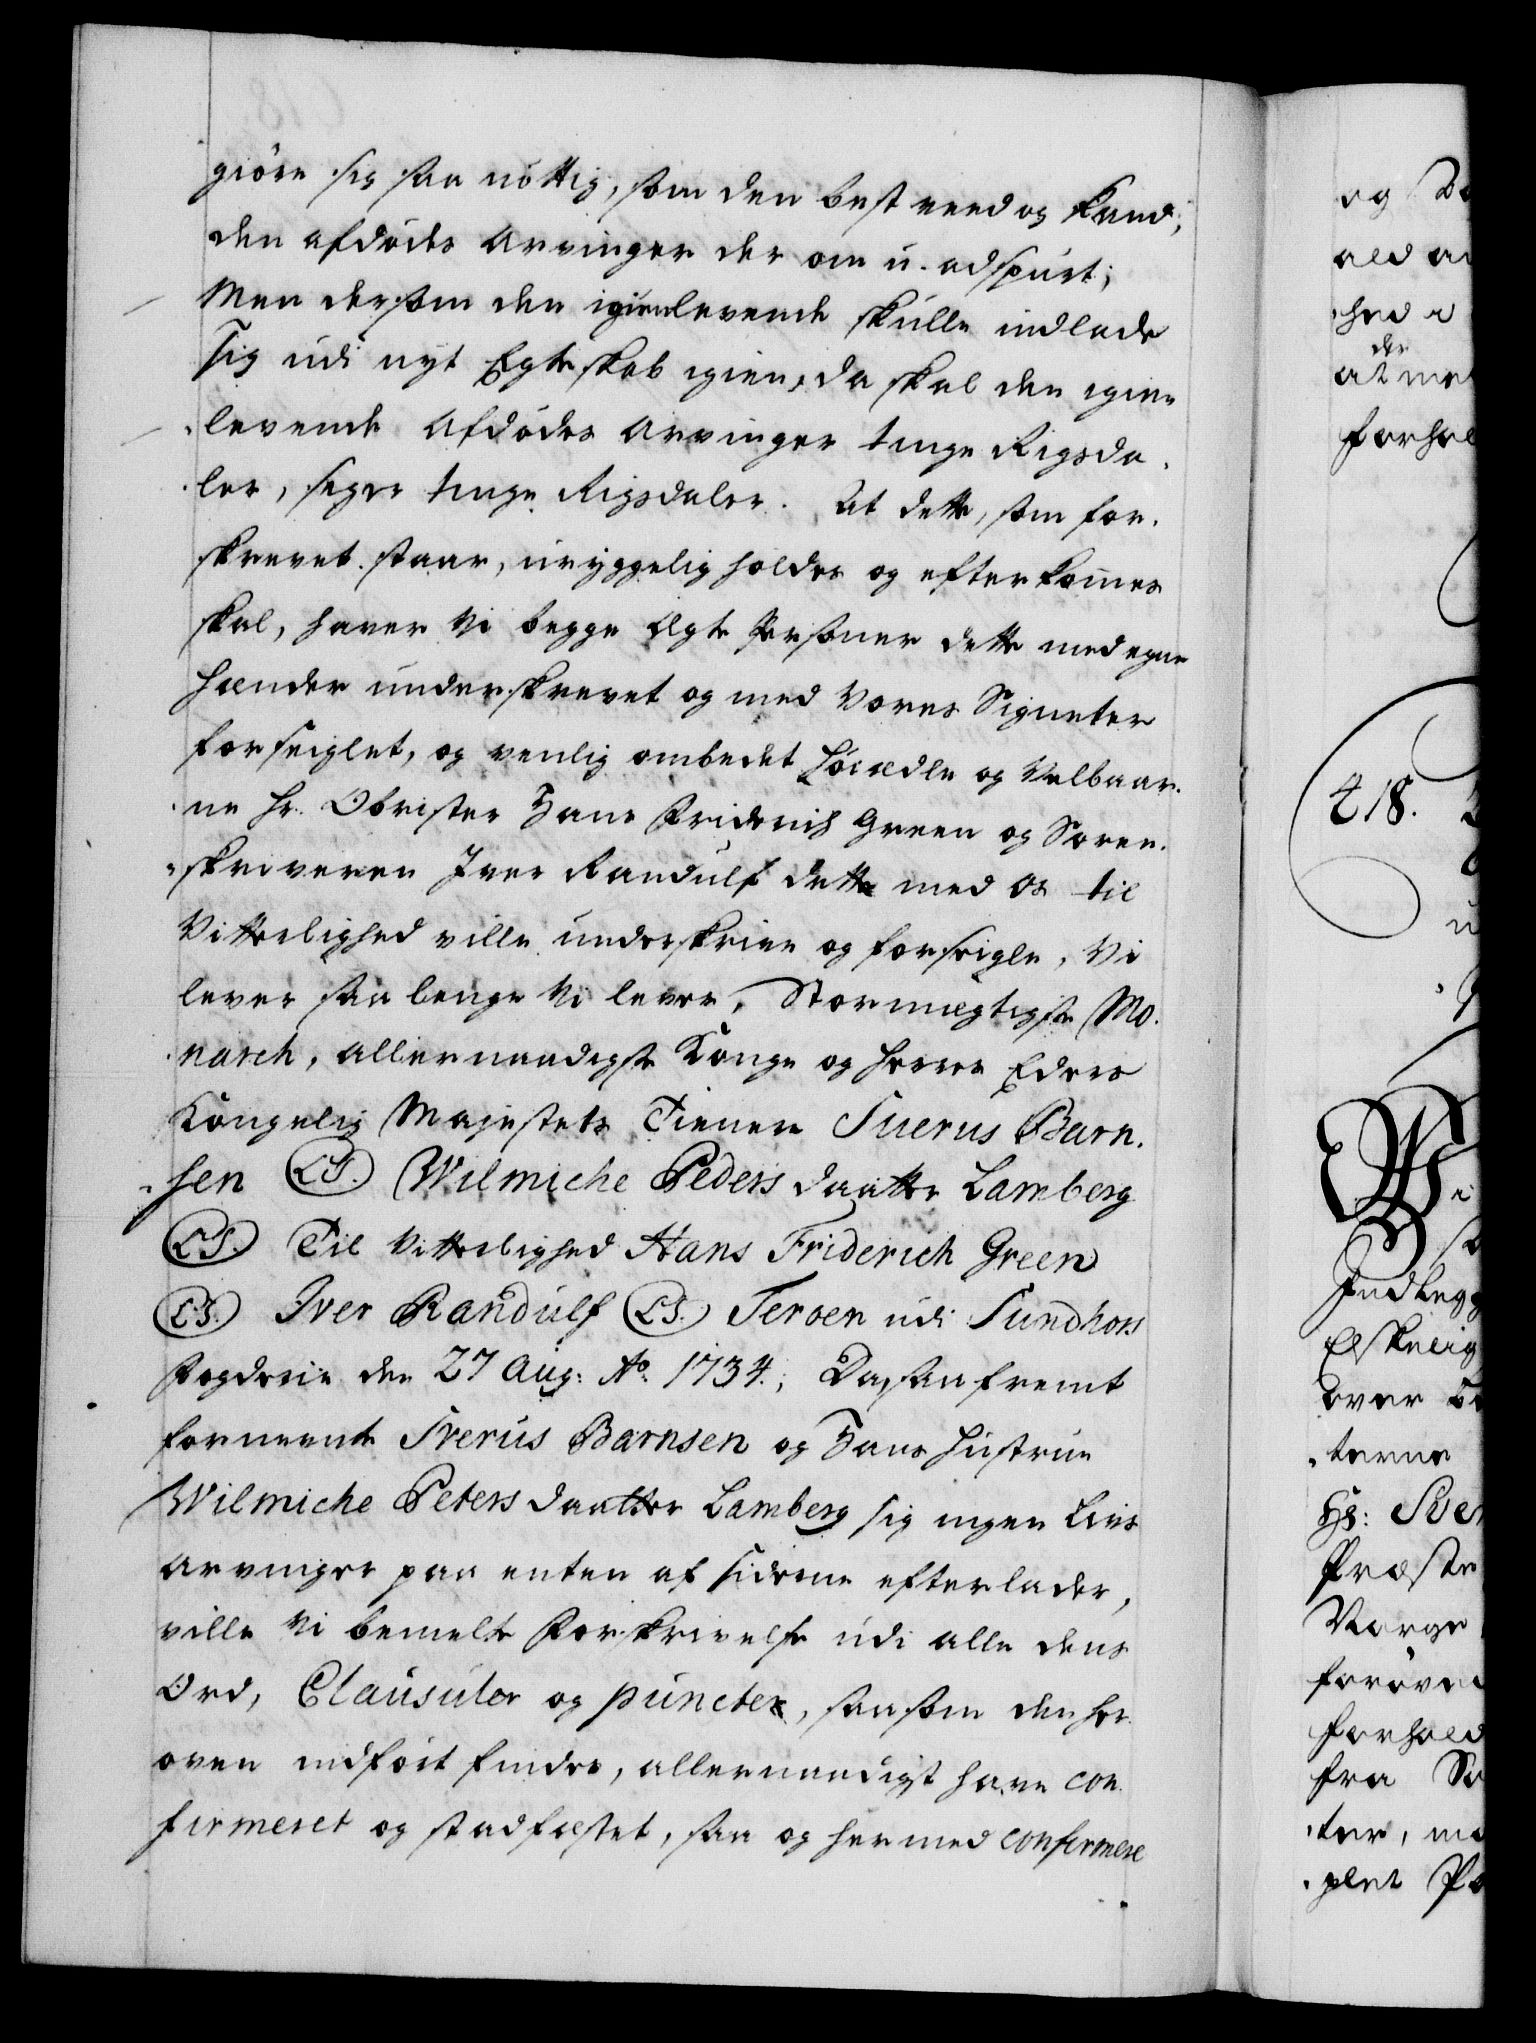 giøre sig saa nøttig, som den best veed og kand,
den afdødes Arvinger der om u-adspurt;
Men dersom den igienlevende skulle indlade
sig udi nyt Egteskab igien, da skal den igien
levende Afdødes Arvinger tinge Rigsda-
ler, siger tinge Rigsdaler. At dette, som for-
skrevet staar, uryggelig holdes og efterkommes
skal, haver Vi begge Egte Persohner dette med egne
Hænder underskrevet og med Vores Signeter
forseiglet, og venlig ombedet Høiædle og Velbaar-
ne Hr. Obrister Hans Friderich Green og Soren-
skriveren Iver Randulf dette med os til
Vitterlighed ville underskrive og forseigle, Vi
lever saa lenge Vi lever, Stormægtigste Mo-
narch, allernaadigste Konge og Herre Eders
Kongelig Majestets Tienere Suerus Barn-
sen (LS.) Wilmiche Peders daatter Lamberg
(LS.) Til Vitterlighed Hans Friderich Green
(LS.) Iver Randulf (LS.) Teroen udi Sundhors
Fogderie den 27 Aug: Ao. 1734.; Da, saa fremt
fornevnte Sverus Barnsen og Hans Hustrue
Wilmiche Peters daatter Lamberg sig ingen Livs
Arvinger paa enten af Siderne efterlader,
ville Vi bemelte Forskrivelse udi alle dens
Ord, Clausuler og puncter, saasom den her
oven indført findes, allernaadigst have con-
firmeret og stadfæstet, saa og hermed confirmere
og
418.
Wi
Indlegg
Elskelig
over
terne
Hr: Sver
Præste
Norge
forhold
fra